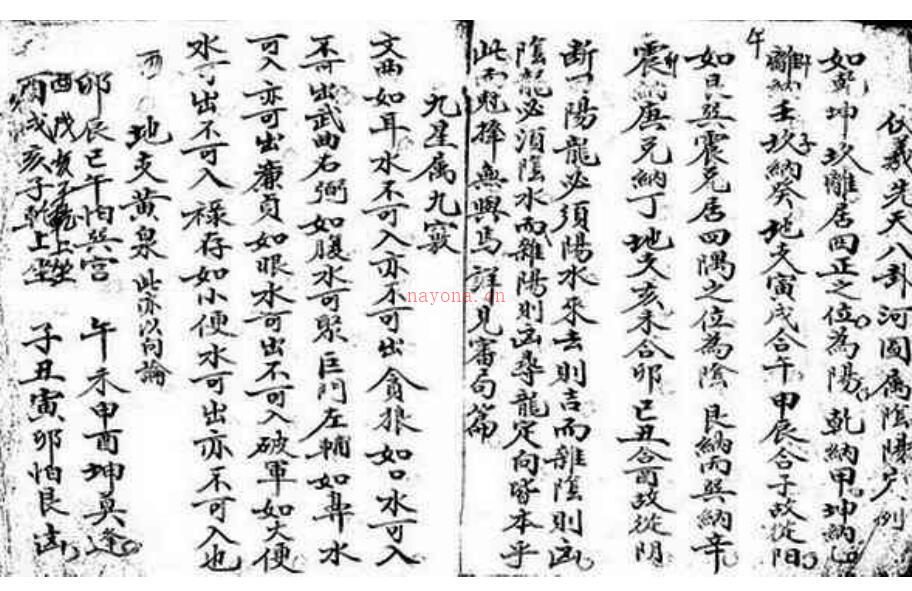 伏羲先天八卦河圖屬陰陽定例
如乾坤坎離居四正之位為陽乾納甲坤納乙
午
離納壬坎納癸地支寅戌合午甲辰合子故從陽
如艮巽震兌居四隅之位為陰艮納丙巽納辛
震納庚兌納丁地支亥未合卯巳丑合酉故從陰
断曰陽龍必須陽水來去則吉而雜陰則凶
陰龍必須陰水而雜陽則凶尋龍定向皆本乎
此而冠擇無與焉詳見審局篇
九星属九竅
文曲如耳水不可入亦不可出貪狼如口水可入
不可出武曲右弼如腹水可聚巨門左輔如鼻水
可入亦可出廉貞如眼水可出不可入破軍如大便
水可出不可入祿存如小便水可出亦不可入也
地支黄泉此亦以向論
卯辰巳午怕巽宮 午未申酉坤莫逢
酉戌亥子乾上坐 子丑寅卯怕艮凶
nayona.cn